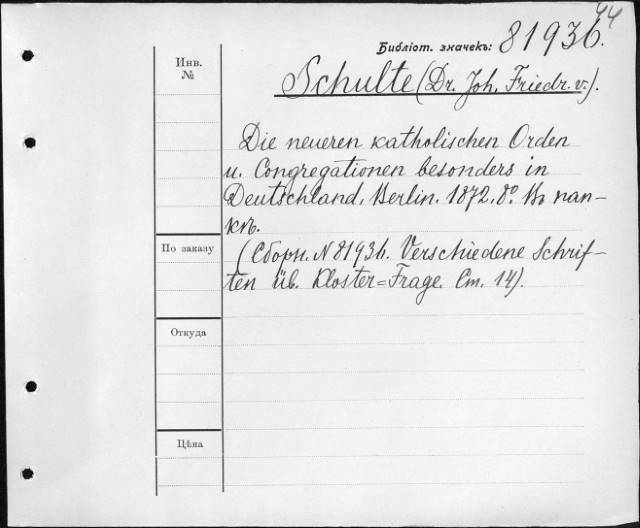 44
Библіот. значекъ: 81936.
Инв.
№
Schulte (Dr. Joh. Friedr. v.).
Die neueren katholischen Orden
u. Congregationen besonders in
Deutschland. Berlin. 1872. 8º. Въ пап-
кѣ.
По заказу
(Сборн. N 81936. Verschiedene Schrif-
ten üb. Kloster=Frage. Ст. 14).
Откуда
Цѣна